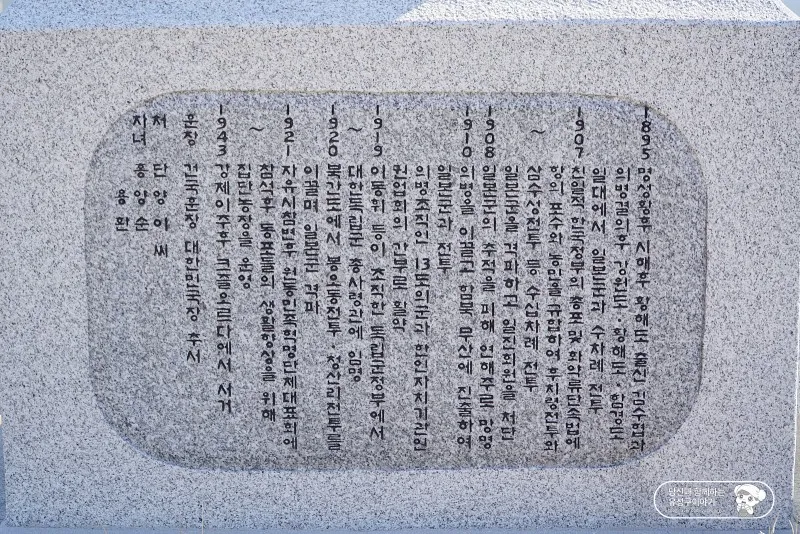 1895 명성황후 시해후 황해도 출신 김수협과
의병결의후 강원도·황해도·함경도
일대에서 일본군과 수차례 전투
1907 친일적 한국정부의 총포 및 화약류단속법에
항의 포수와 농민을 규합하여 후치령전투와
~ 삼수성전투 등 수십차례 전투
일본군을 격파하고 일진회원을 처단
1908 일본군의 추적을 피해 연해주로 망명
1910 의병을 이끌고 함북 무산에 진출하여
일본군과 전투
의병조직인 13도의군과 한인자치기관인
권업회의 간부로 활약
1919 이동휘 등이 조직한 독립군정부에서
~ 대한독립군 총사령관에 임명
1920 북간도에서 봉오동전투·청산리전투를
이끌며 일본군 격파
1921 자유시참변후 원동민족혁명단체대표회에
~ 참석후 동포들의 생활향상을 위해
집단농장을 운영
1943 강제이주후 크즐오르다에서 서거
훈장 건국훈장 대한민국장 추서
처 단양이씨
자녀 홍양순
용환
당신과 함께하는
유성구이야기